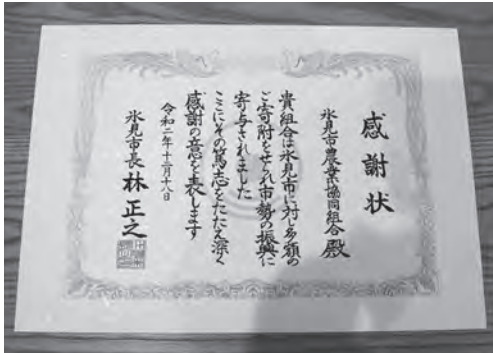 感謝状
氷見市農業協同組合殿
貴組合は氷見市に対し多額の
ご寄附をせられ市勢の振興に
寄与されました
ここにその篤志をたたえ深く
感謝の意を表します
令和二年十二月十八日
氷見市長 林正之